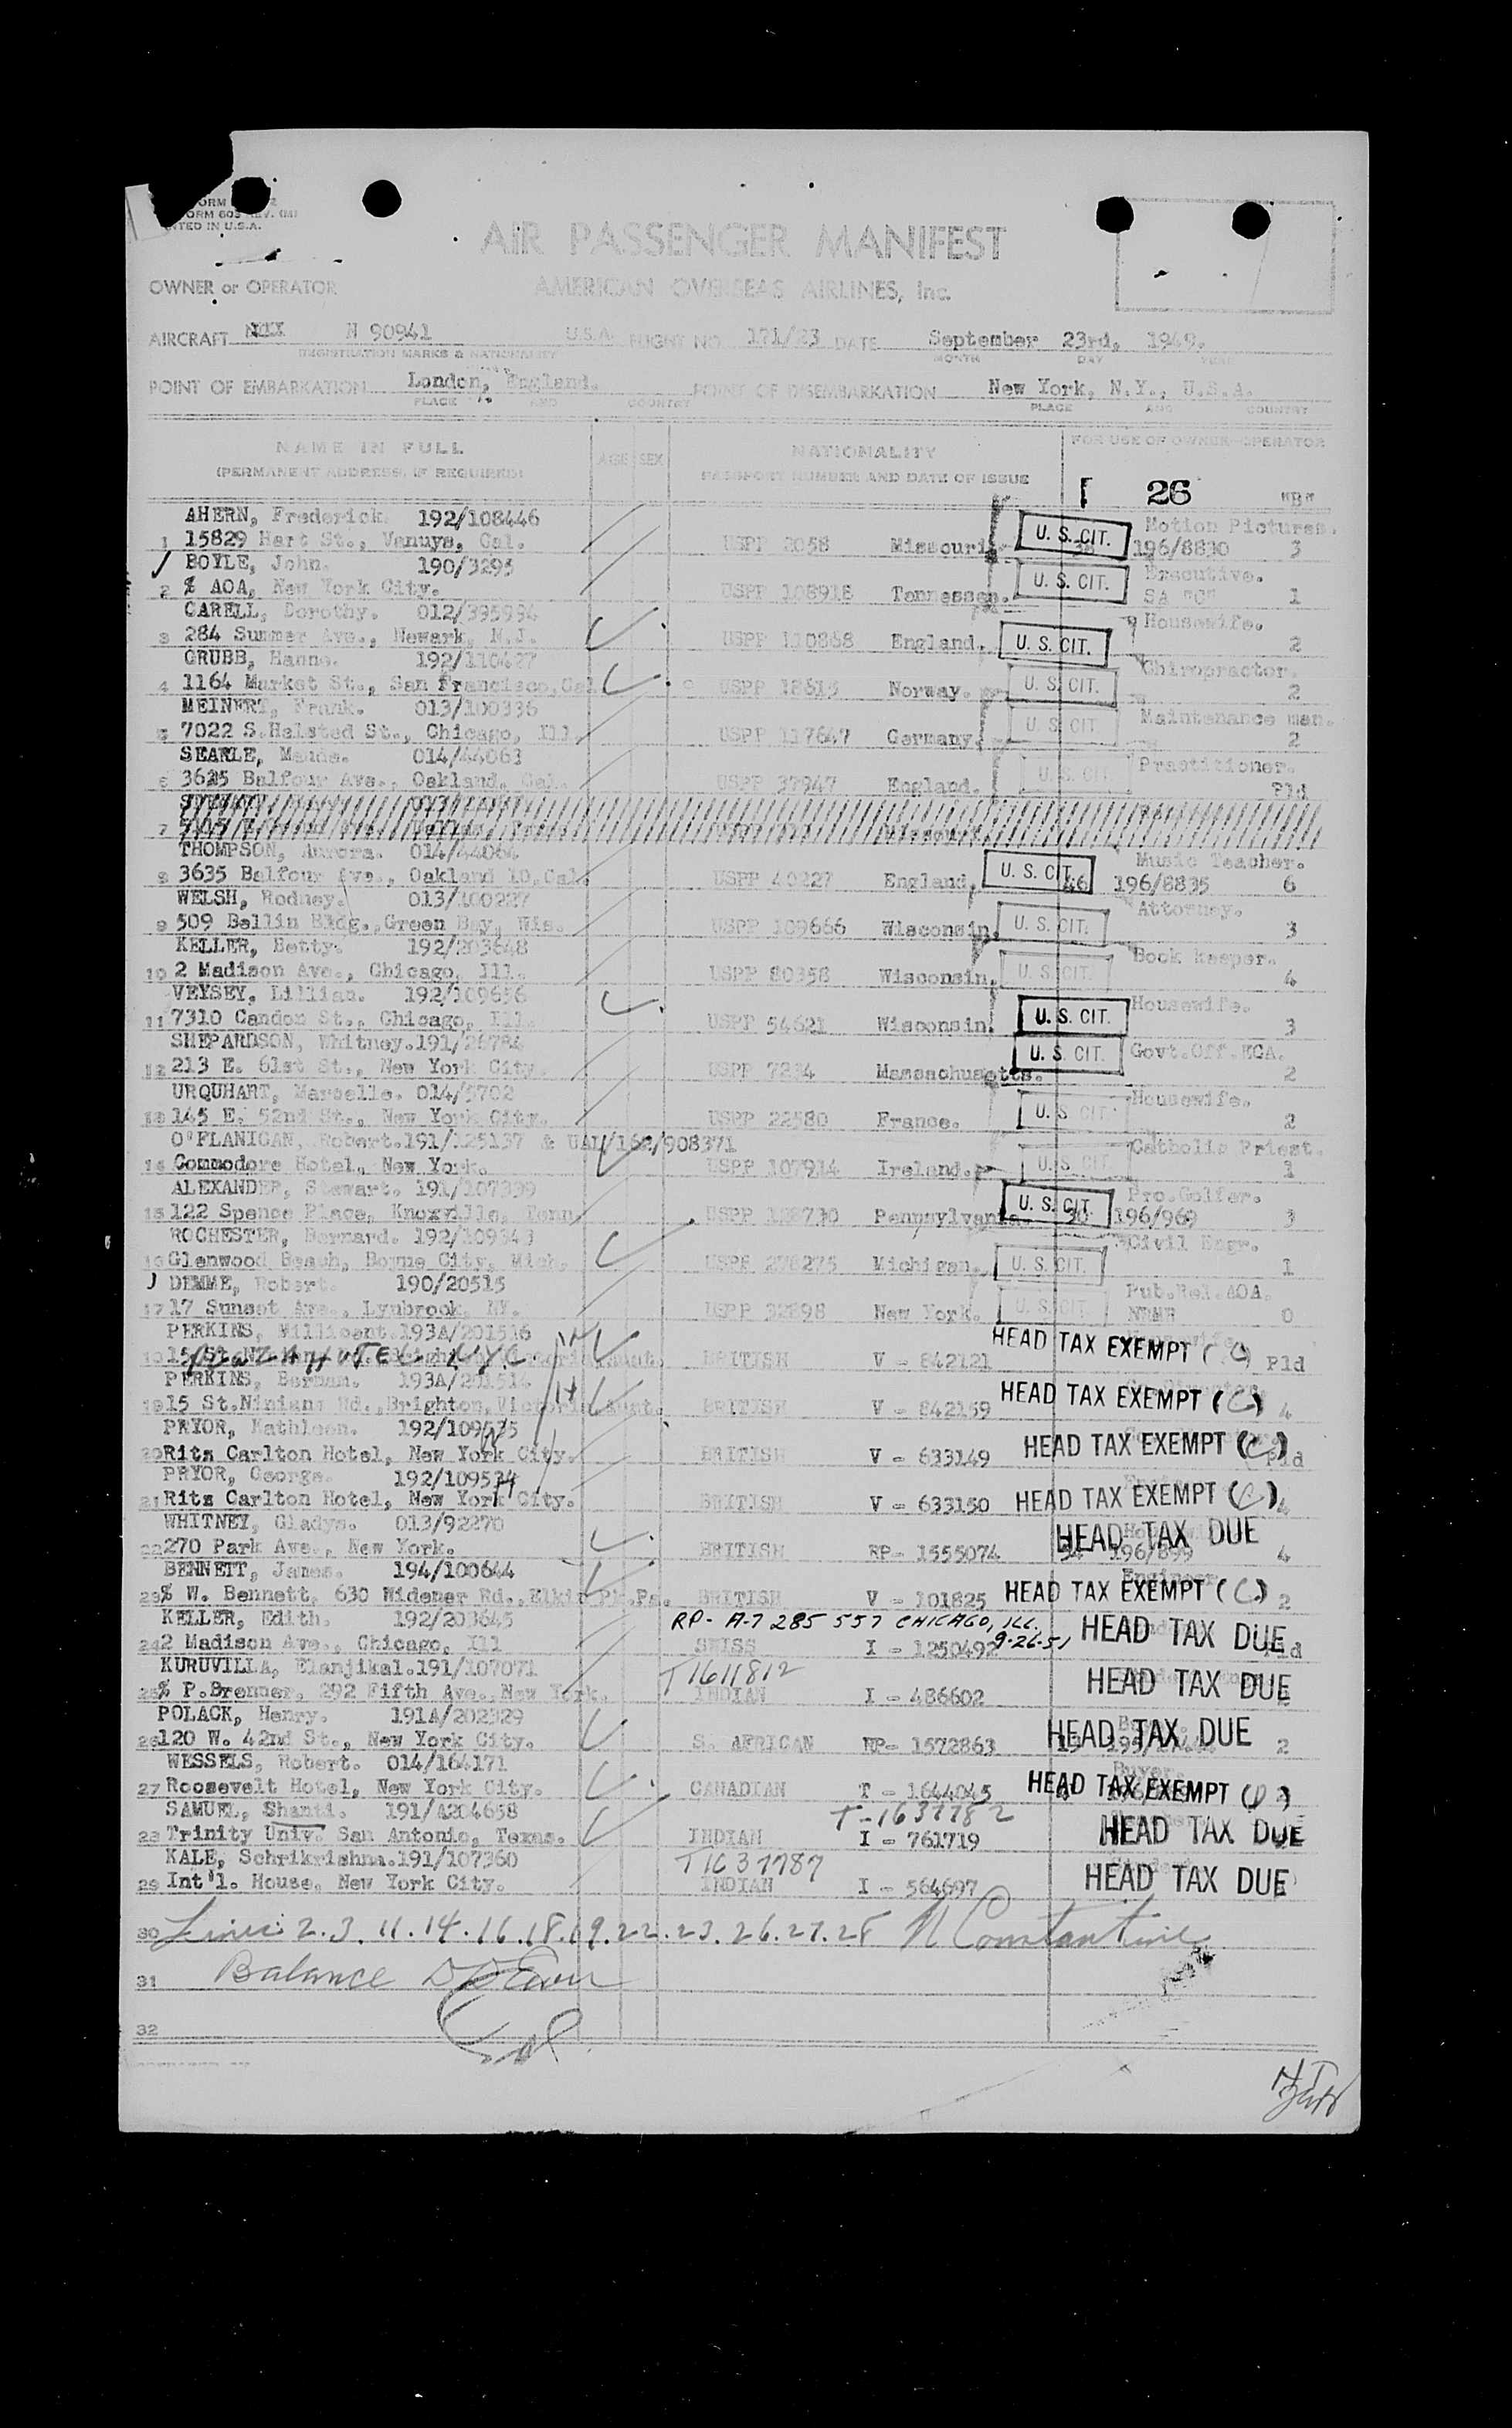 FORM
FORM 603 REV.
PRINTED IN U.S.A.
AIR PASSENGER MANIFEST
OWNER or OPERATOR AMERICAN OVERSEAS AIRLINES, Inc.
AIRCRAFT N 90941 U.S.A. FLIGHT NO. 171/23 DATE September 23rd, 1949.
REGISTRATION MARKS & NATIONALITY MONTH DAY YEAR
POINT OF EMBARKATION London, England. POINT OF DISEMBARKATION New York, N.Y., U.S.A.
PLACE AND COUNTRY PLACE AND COUNTRY
NAME IN FULL AGE SEX NATIONALITY FOR USE OF OWNER-OPERATOR
(PERMANENT ADDRESS, IF REQUIRED) PASSPORT NUMBER AND DATE OF ISSUE
26
AHERN, Frederick. 192/108446 Motion Pictures.
1 15829 Hart St., Vanuys, Cal. USPP 2058 Missouri. U. S. CIT. 196/8830 3
BOYLE, John. 190/3295 Executive.
2 % AOA, New York City. USPP 108918 Tennessee. U. S. CIT. SA "C" 1
CARELL, Dorothy. 012/395994 Housewife.
3 284 Summer Ave., Newark, N.J. USPP 110868 England. U. S. CIT. 2
GRUBB, Hanna. 192/110427 Chiropractor.
4 1164 Market St., San Francisco, Cal USPP 18615 Norway. U. S. CIT. 2
MEINERT, Frank. 013/100336 Maintenance man.
5 7022 S.Halsted St., Chicago, Ill. USPP 117647 Germany. U. S. CIT. 2
SEARLE, Maude. 014/44063 Practitioner.
6 3635 Balfour Ave., Oakland, Cal. USPP 37947 England. U. S. CIT. Pld
7
THOMPSON, Aurora. 014/44064 Music Teacher.
8 3635 Balfour Ave., Oakland 10, Cal. USPP 40227 England. U. S. CIT. 46 196/8835 6
WELSH, Rodney. 013/100227 Attorney.
9 509 Bellin Bldg., Green Bay, Wis. USPP 109666 Wisconsin. U. S. CIT. 3
KELLER, Betty. 192/203648 Book keeper.
10 2 Madison Ave., Chicago, Ill. USPP 80358 Wisconsin. U. S. CIT. 4
VEYSEY, Lillian. 192/109656 Housewife.
11 7310 Candon St., Chicago, Ill. USPP 54621 Wisconsin. U. S. CIT. 3
SHEPARDSON, Whitney. 191/26784 Govt.Off.ECA.
12 213 E. 61st St., New York City. USPP 7234 Massachusetts. U. S. CIT. 2
URQUHART, Marcelle. 014/5702 Housewife.
13 145 E. 52nd St., New York City. USPP 22580 France. U. S. CIT. 2
O'FLANIGAN, Robert. 191/125137 & UAL/162/908371 Catholic Priest.
14 Commodore Hotel, New York. USPP 107914 Ireland. U. S. CIT. 1
ALEXANDER, Stewart. 191/107339 Pro.Golfer.
15 122 Spence Place, Knoxville, Tenn USPP 128730 Pennsylvania. U. S. CIT. 30 196/969 3
ROCHESTER, Bernard. 192/109343 Civil Engr.
16 Glenwood Beach, Boyne City, Mich. USPP 276275 Michigan. U. S. CIT. 1
DEMME, Robert. 190/20515 Pub.Rel.AOA.
17 17 Sunset Ave., Lynbrook, NY. USPP 32898 New York. U. S. CIT. NRMR 0
PERKINS, Millicent. 193A/201516 HEAD TAX EXEMPT (C)
18 BRITISH V - 842121 Pld
PERKINS, Berman. 193A/201514
19 15 St.Ninians Rd., Brighton, Victoria BRITISH V - 842159 HEAD TAX EXEMPT (C) 4
PRYOR, Kathleen. 192/109535
20 Ritz Carlton Hotel, New York City. BRITISH V - 633149 HEAD TAX EXEMPT (C) Pld
PRYOR, George. 192/109534
21 Ritz Carlton Hotel, New York City. BRITISH V - 633150 HEAD TAX EXEMPT (C) 4
WHITNEY, Gladys. 013/92270 HEAD TAX DUE
22 270 Park Ave., New York. BRITISH RP- 1555074 54 196/899 4
BENNETT, James. 194/100644 Engineer
23 % W. Bennett, 630 Widener Rd., Elkin Pk. Pa. BRITISH V - 101825 HEAD TAX EXEMPT (C) 2
KELLER, Edith. 192/203645 RP- A-7 285 557 CHICAGO, ILL. 9-26-51 HEAD TAX DUE
24 2 Madison Ave., Chicago, Ill SWISS I - 1250492 Pld
KURUVILLA, Elanjikal. 191/107071 T1611812 HEAD TAX DUE
25 % P.Brenner, 292 Fifth Ave., New York. INDIAN I - 486602
POLACK, Henry. 191A/202329 HEAD TAX DUE
26 120 W. 42nd St., New York City. S. AFRICAN RP- 1572863 2
WESSELS, Robert. 014/164171 Buyer.
27 Roosevelt Hotel, New York City. CANADIAN T - 1644045 HEAD TAX EXEMPT
SAMUEL, Shanti. 191/A204658 T-1637782
28 Trinity Univ. San Antonio, Texas. INDIAN I - 761719 HEAD TAX DUE
KALE, Schrikrishna. 191/107360 T1637787
29 Int'l. House, New York City. INDIAN I - 564697 HEAD TAX DUE
30 Lines 2.3.11.14.16.18.19.22.23.26.27.28 N Constantine
31 Balance
32